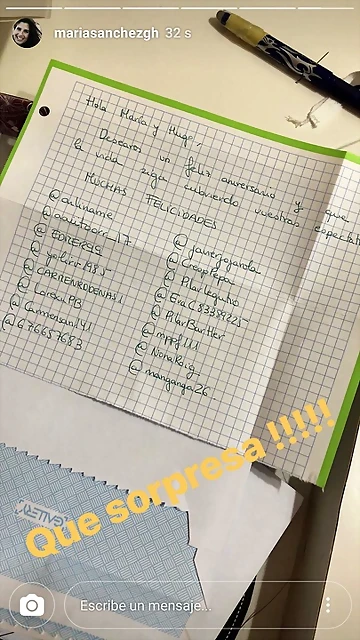 mariasanchezgh 32 s
Hola María y Hugo,
Desearos un feliz aniversario y que
la vida siga cubriendo vuestras expectati
MUCHAS FELICIDADES
@auliname
@EDITERSG
@yolirv1985
@CARMENRODENAS1
@LorocaPB
@Carmensan141
@676657683
@javierjojarda
@CreopPepa
@Pilarleguino
@EvaC83389225
@PilarBartler
@mppf111
@NoraRoig
@manganga26.
Que sorpresa !!!!!
GALLERY
Escribe un mensaje...